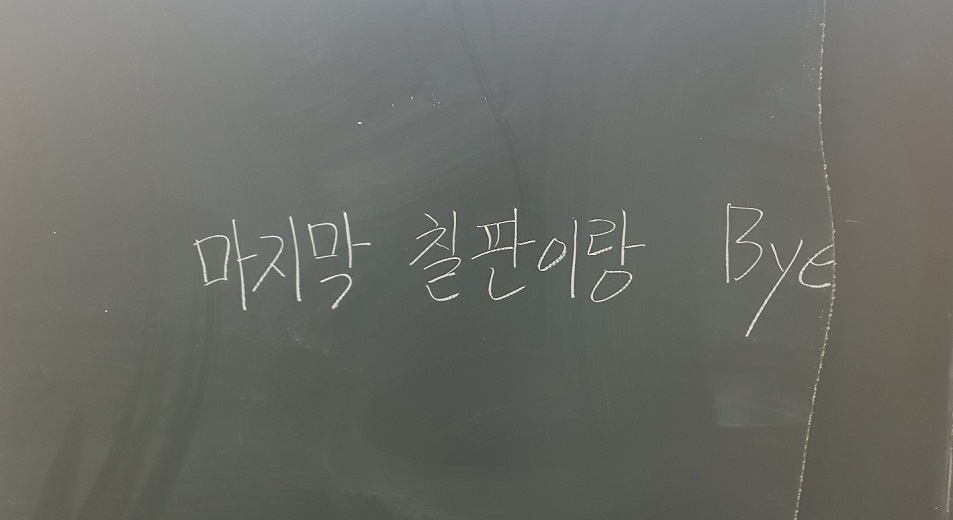 마지막 칠판이랑 Bye